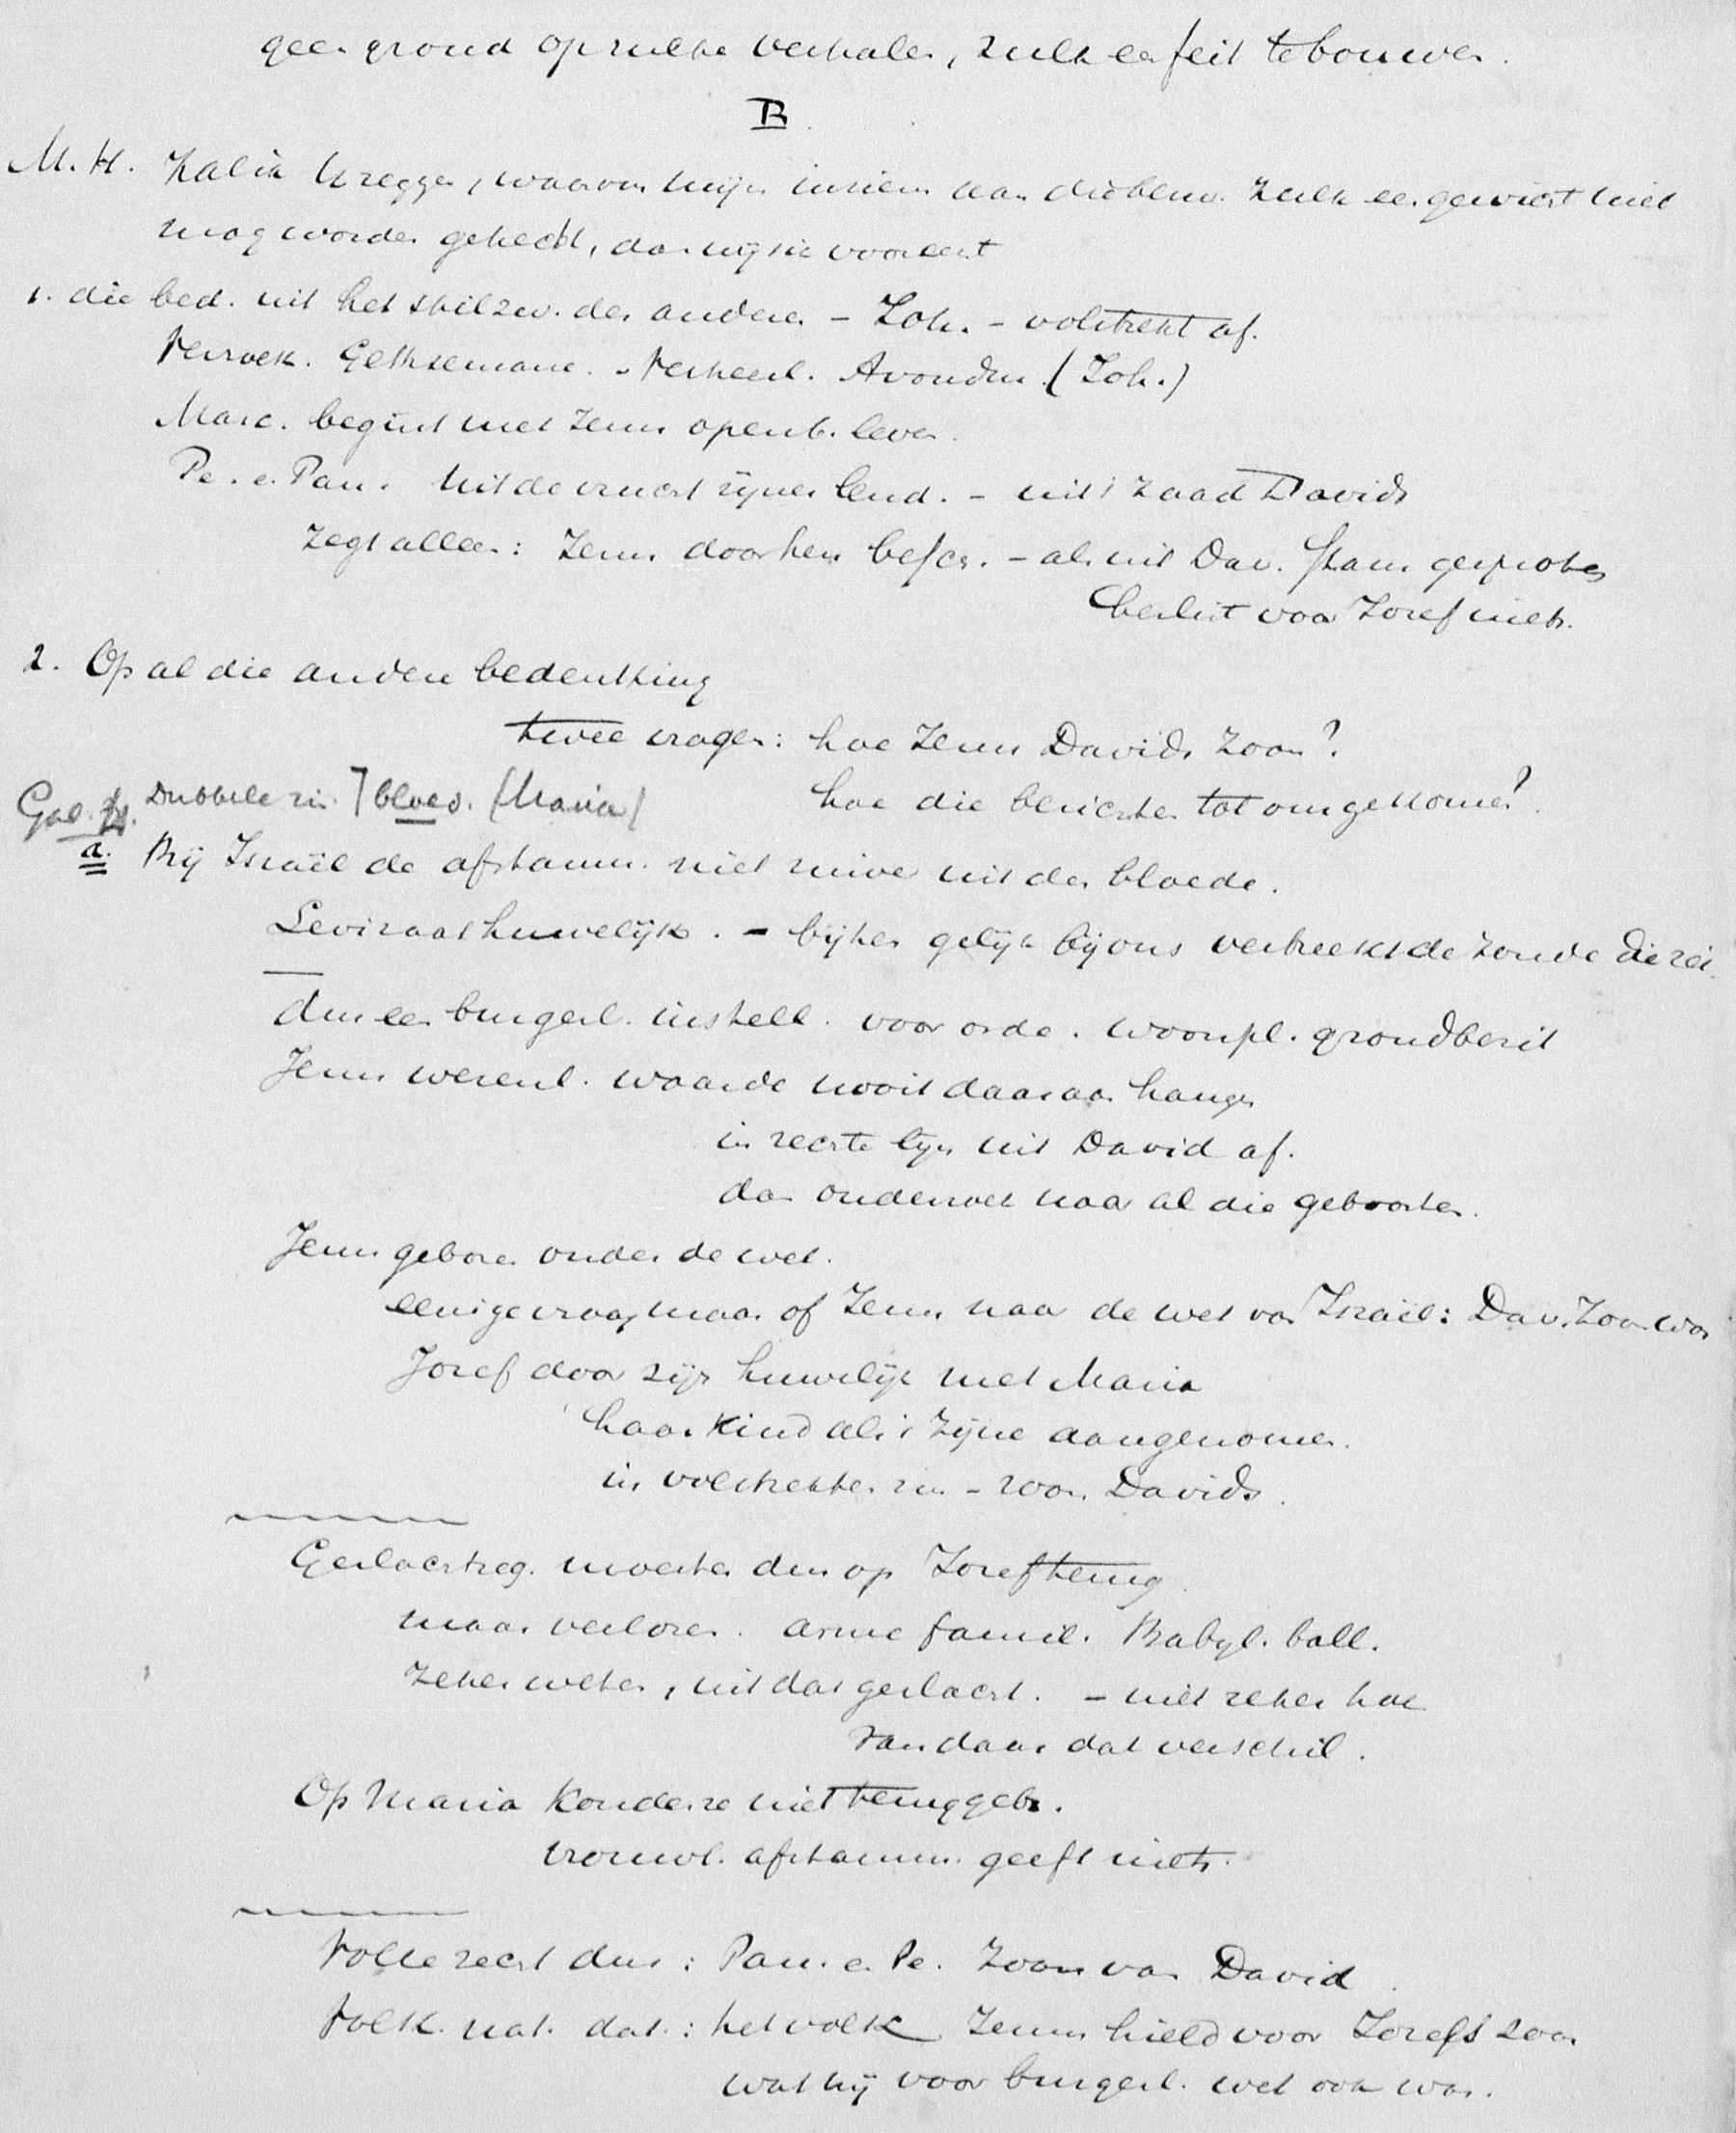 geen grond op zulke verhalen, zulk een feit te bouwen.
B.
M.H. Zal ik U zeggen, waarom mijns inziens aan die bew. zulk een gewicht niet
mag worden gehecht, dan wijs ik vooreerst
1. die bed. uit het stilzw. der anderen – Joh. – volstrekt af.
Verzoek. Gethsemane. – Verheerl. Avondm. (Joh.)
Marc. begint met Jezus openb. leven.
Pe. e. Pau. Uit de vrucht zijner lend. – uit 't zaad Davids
zegt alleen: Jezus door hen besch. – als uit Dav. stam gesproten
beslist voor Jozef niets.
2. Op al die andere bedenking
twee vragen: hoe Jezus Davids Zoon?
hoe die berichten tot ons gekomen?
Gal. Dubbele zin bloed. (Maria)
a. Bij Israël de afstamm. niet zuiver uit den bloede.
Leviraathuwelijk. – bij hen gelijk bij ons verbreekt de zonde die
dus een burgerl. instell. voor orde. woonpl. grondbezit
Jezus wezenl. waarde nooit daaraan hangen
in rechte lijn uit David af.
dan onderzoek naar al die geboorten.
Jezus geboren onder de wet.
eenige vraag maar of Jezus naar de wet van Israël: Dav. Zoon was
Jozef door zijn huwelijk met Maria
haar kind als 't zijne aangenomen.
in volstrekten zin – zoon Davids.
Geslachtreg. moesten dus op Jozef terug.
maar verloren. arme famil. Babyl. ball.
zeker weten, uit dat geslacht. – niet zeker hoe
vandaar dat verschil.
Op Maria konden ze niet teruggebr.
vrouwl. afstamm. geeft niets.
Volle recht dus: Pau. e. Pe. Zoon van David.
Volk. nat. dat.: het volk Jezus hield voor Jozefs zoon
wat hij voor burgerl. wet ook was.